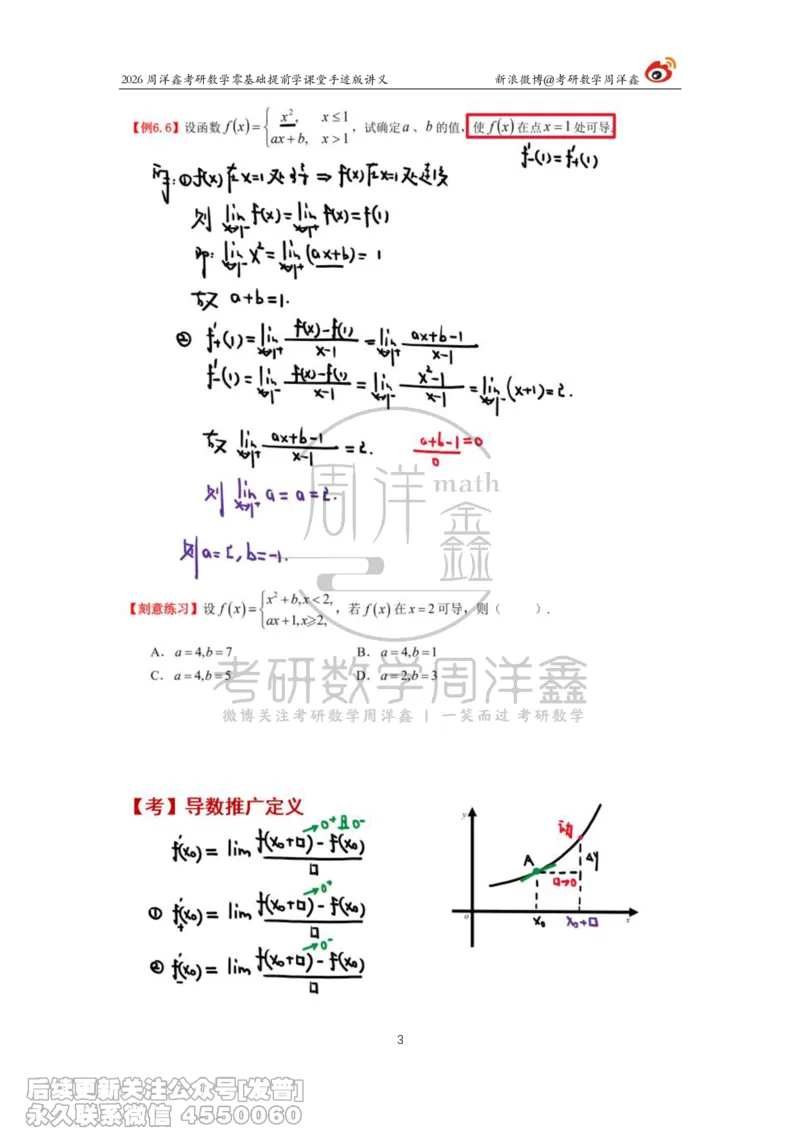 2026 周洋鑫考研数学零基础提前学课堂手迹版讲义 新浪微博@考研数学周洋鑫
【例6.6】设函数 f(x)={ x², x≤1 ; ax+b, x>1 ，试确定a、b的值，使f(x)在点x=1处可导.
f'₋(1)=f'₊(1)
解:①f(x)在x=1处可导 ⇒ f(x)在x=1处连续
则 lim_{x→1⁻} f(x)=lim_{x→1⁺} f(x)=f(1)
即: lim_{x→1⁻} x²=lim_{x→1⁺} (ax+b)=1
故 a+b=1.
② f'₊(1)=lim_{x→1⁺} (f(x)-f(1))/(x-1) =lim_{x→1⁺} (ax+b-1)/(x-1)
f'₋(1)=lim_{x→1⁻} (f(x)-f(1))/(x-1) =lim_{x→1⁻} (x²-1)/(x-1) =lim_{x→1⁻} (x+1)=2.
故 lim_{x→1⁺} (ax+b-1)/(x-1) =2. (a+b-1=0)/0
则 lim_{x→1⁺} a=a=2.
则a=2,b=-1.
【刻意练习】设f(x)={ x²+b,x<2, ; ax+1,x≥2, ，若f(x)在x=2可导，则（ ）.
A. a=4,b=7 B. a=4,b=1
C. a=4,b=5 D. a=2,b=3
周洋鑫 math
考研数学周洋鑫
微博关注考研数学周洋鑫 | 一笑而过 考研数学
【考】导数推广定义
f'(x₀)=lim (f(x₀+□)-f(x₀))/□ →0⁺且0⁻
① f'₊(x₀)=lim (f(x₀+□)-f(x₀))/□ →0⁺
② f'₋(x₀)=lim (f(x₀+□)-f(x₀))/□ →0⁻
y
动
A
Δy
□→0
o x₀ x₀+□ x
3
后续更新关注公众号[发普]
永久联系微信 4550060